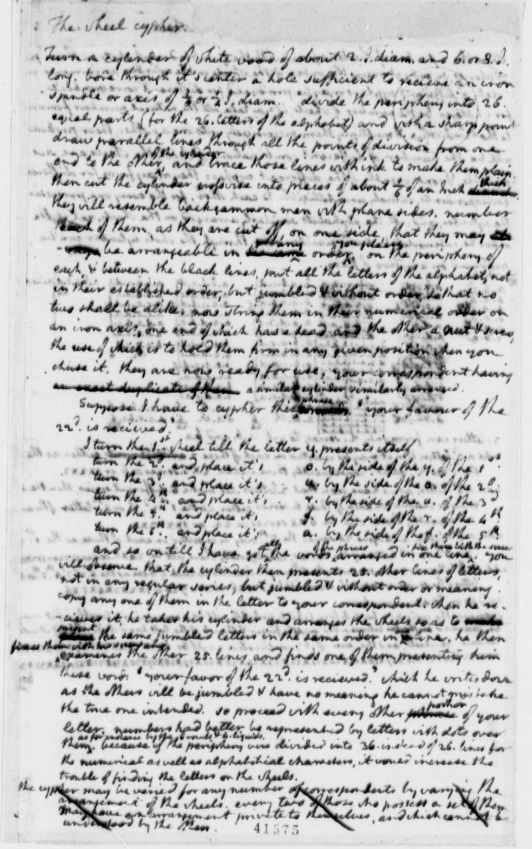 The wheel cypher.
Turn a cylinder of white wood of about 2. I. diam. and 6. or 8. I.
long. bore through it's center a hole sufficient to recieve an iron
spindle or axis of 1/8 or 1/4 I. diam. divide the periphery into 26.
equal parts (for the 26. letters of the alphabet) and with a sharp point
draw parallel lines through all the points of division from one
end to the other of the cylinder, and trace those lines with ink to make them plain.
then cut the cylinder crosswise into pieces of about 1/6 of an inch thick
they will resemble back-gammon men with plane sides. number
each of them, as they are cut off, on one side, that they may
be arrangeable in any order you please. on the periphery of
each, & between the black lines, put all the letters of the alphabet, not
in their established order, but jumbled & without order, so that no
two shall be alike. now string them in their numerical order on
an iron axis, one end of which has a head, and the other a nut & screw,
the use of which is to hold them firm in any given position when you
chuse it. they are now ready for use, your correspondent having
a similar cylinder similarly arranged.
Suppose I have to cypher this phrase 'your favour of the
22d. is recieved'
I turn the 1st. wheel till the letter y. presents itself
turn the 2d. and place it's o. by the side of the y. of the 1st.
turn the 3d. and place it's u. by the side of the o. of the 2d.
turn the 4th. and place it's r. by the side of the u. of the 3d
turn the 5th. and place it's f. by the side of the r. of the 4th
turn the 6th. and place it's a. by the side of the f. of the 5th
and so on till I have got all the words of the phrase arranged in one line. fix them with the screw. you
will observe that the cylinder then presents 25. other lines of letters,
not in any regular series, but jumbled & without order or meaning.
copy any one of them in the letter to your correspondent. when he re-
cieves it, he takes his cylinder and arranges the wheels so as to
present the same jumbled letters in the same order in a line. he then
fixes them with his screw and
examines the other 25. lines and finds one of them presenting him
these words 'your favor of the 22d. is recieved.' which he writes down
as the others will be jumbled & have no meaning he cannot mistake
the true one intended. so proceed with every other portion of your
letter. numbers had better be represented by letters with dots over
them, as for instance by the 6. vowels & 4. liquids.
because if the periphery were divided into 36. instead of 26. lines for
the numerical as well as alphabetical characters, it would increase the
trouble of finding the letters on the wheels.
the cypher may be varied for any number of correspondents by varying the
arrangement of the wheels. every two of those who possess a set of them
may have an arrangement private to themselves, and which cannot be
understood by the others.
41575